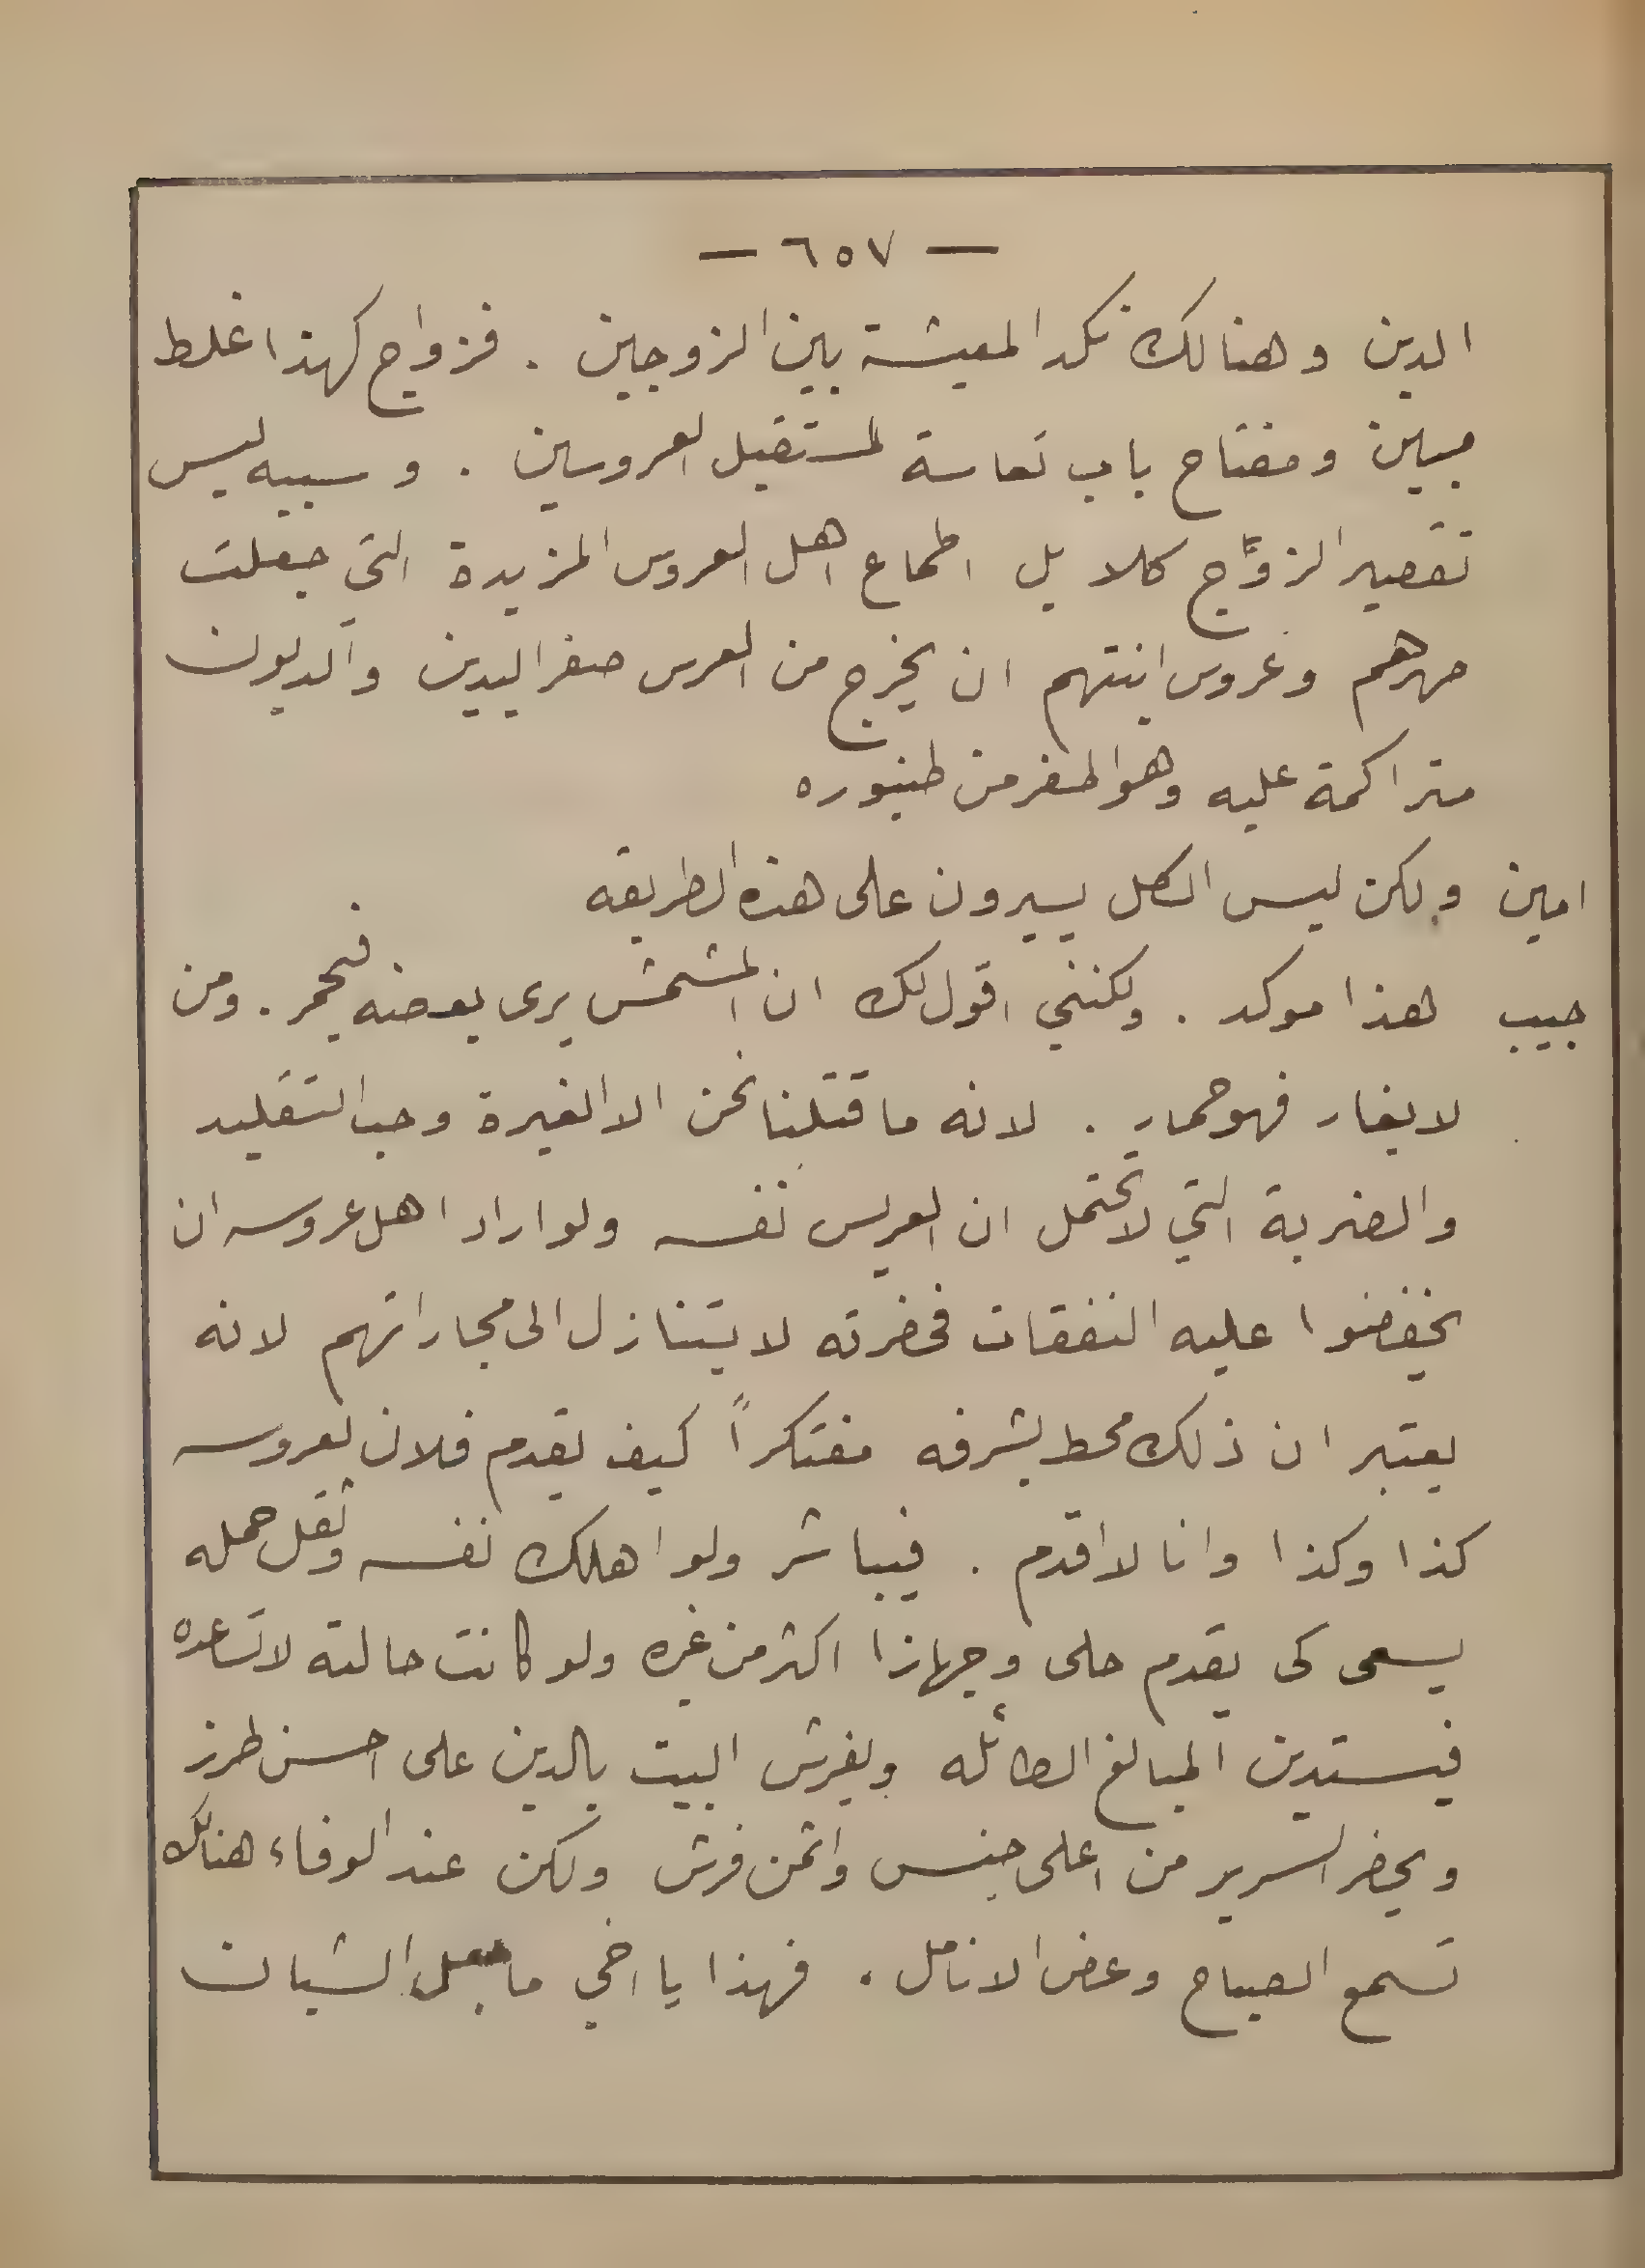 — ٦٥٧ —
الدين وهنالك نكد المعيشة بين الزوجين . فزواج كهذا غلط
مبين ومفتاح باب تعاسة لمستقبل العروسين . وسببه ليس
تقصير الزوَّاج كلا بل اطماع اهل العروس المزيدة التي جعلت
صهرهم وعروس ابنتهم ان يخرج من العرس صفر اليدين والديون
متراكمة عليه وهو اصفر من طنبوره
امين ولكن ليس الكل يسيرون على هذه الطريقه
حبيب هذا موكد . ولكنني اقول لك ان المشمش يرى بعضه فيحمر . ومن
لا يغار فهو حمار . لانه ما قتلنا نحن الا الغيرة وحب التقليد
والضربة التي لا تحتمل ان العريس نفسه ولو اراد اهل عروسه ان
يخفضوا عليه النفقات فحضرته لا يتنازل الى مجاراتهم لانه
يعتبر ان ذلك محط بشرفه مفتكراً كيف يقدم فلان لعروسه
كذا وكذا وانا لا اقدم . فيباشر ولو اهلك نفسه وثقل حمله
يسعى كى يقدم حلى وجهازا اكثر من غيره ولو كانت حالته لا تساعده
فيستدين المبالغ الطائله ويفرش البيت بالدين على احسن طرز
ويحضر السرير من اعلى جنس واثمن فرش ولكن عند الوفاء هنالك
تسمع الصياح وعض الانامل . فهذا يا اخي ما جعل الشبان